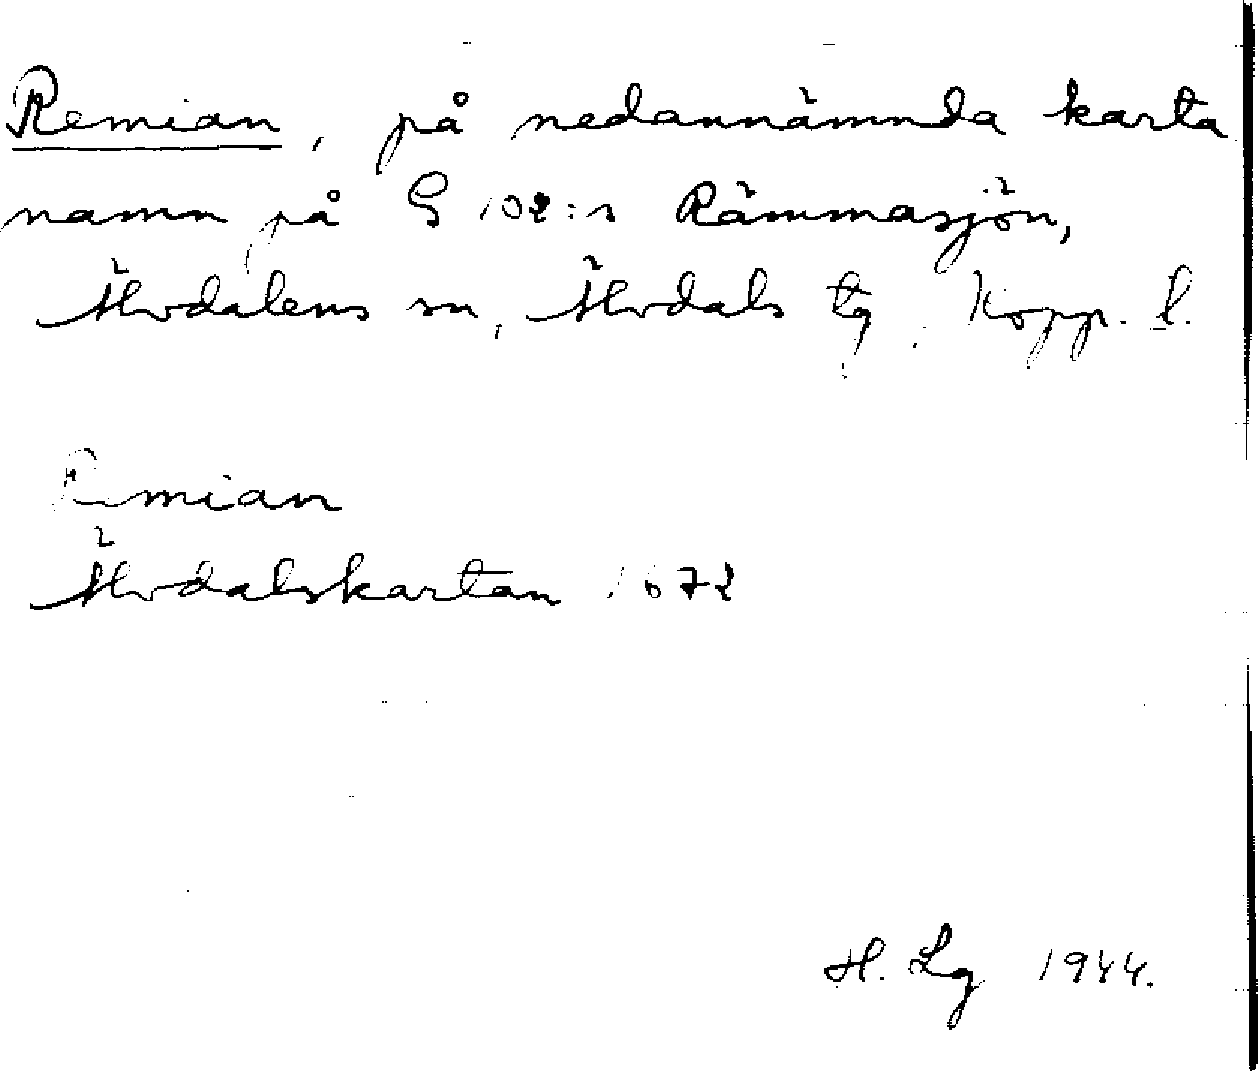 Remian, på nedannämnda karta
namn på G 102:s Rämmasjön,
Älvdalens sn, Älvdals tg, Kopp. l.
Remian
Älvdalskartan 1672
H. Lg 1944.